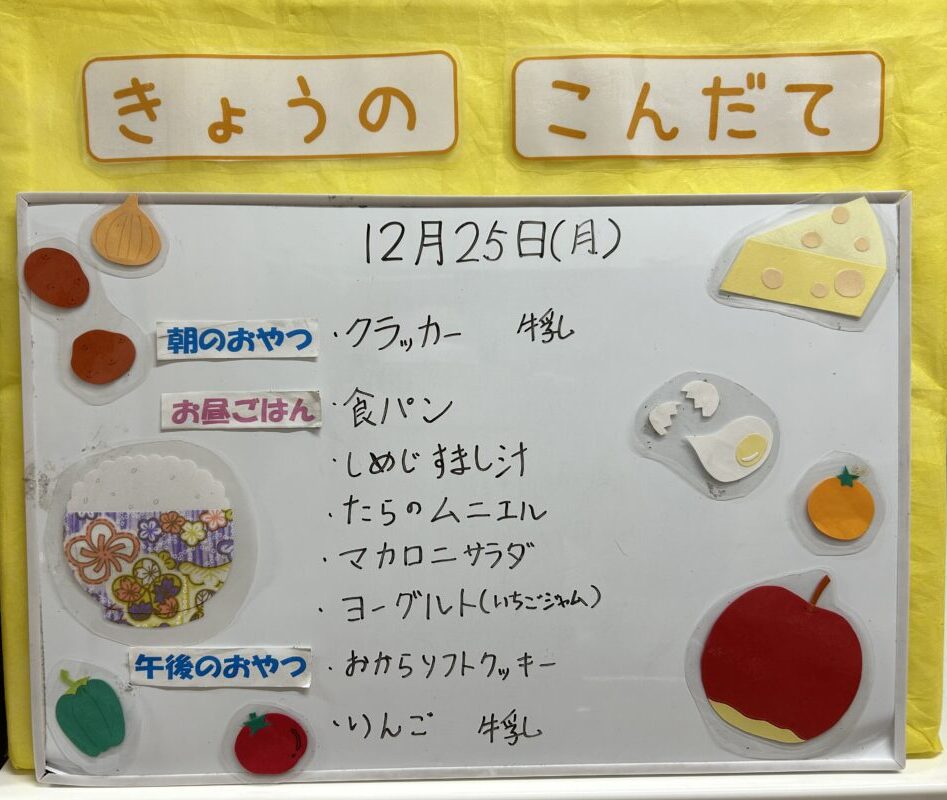 きょうの こんだて
12月25日(月)
朝のおやつ ・クラッカー 牛乳
お昼ごはん ・食パン
・しめじすまし汁
・たらのムニエル
・マカロニサラダ
・ヨーグルト(いちごジャム)
午後のおやつ ・おからソフトクッキー
・りんご 牛乳